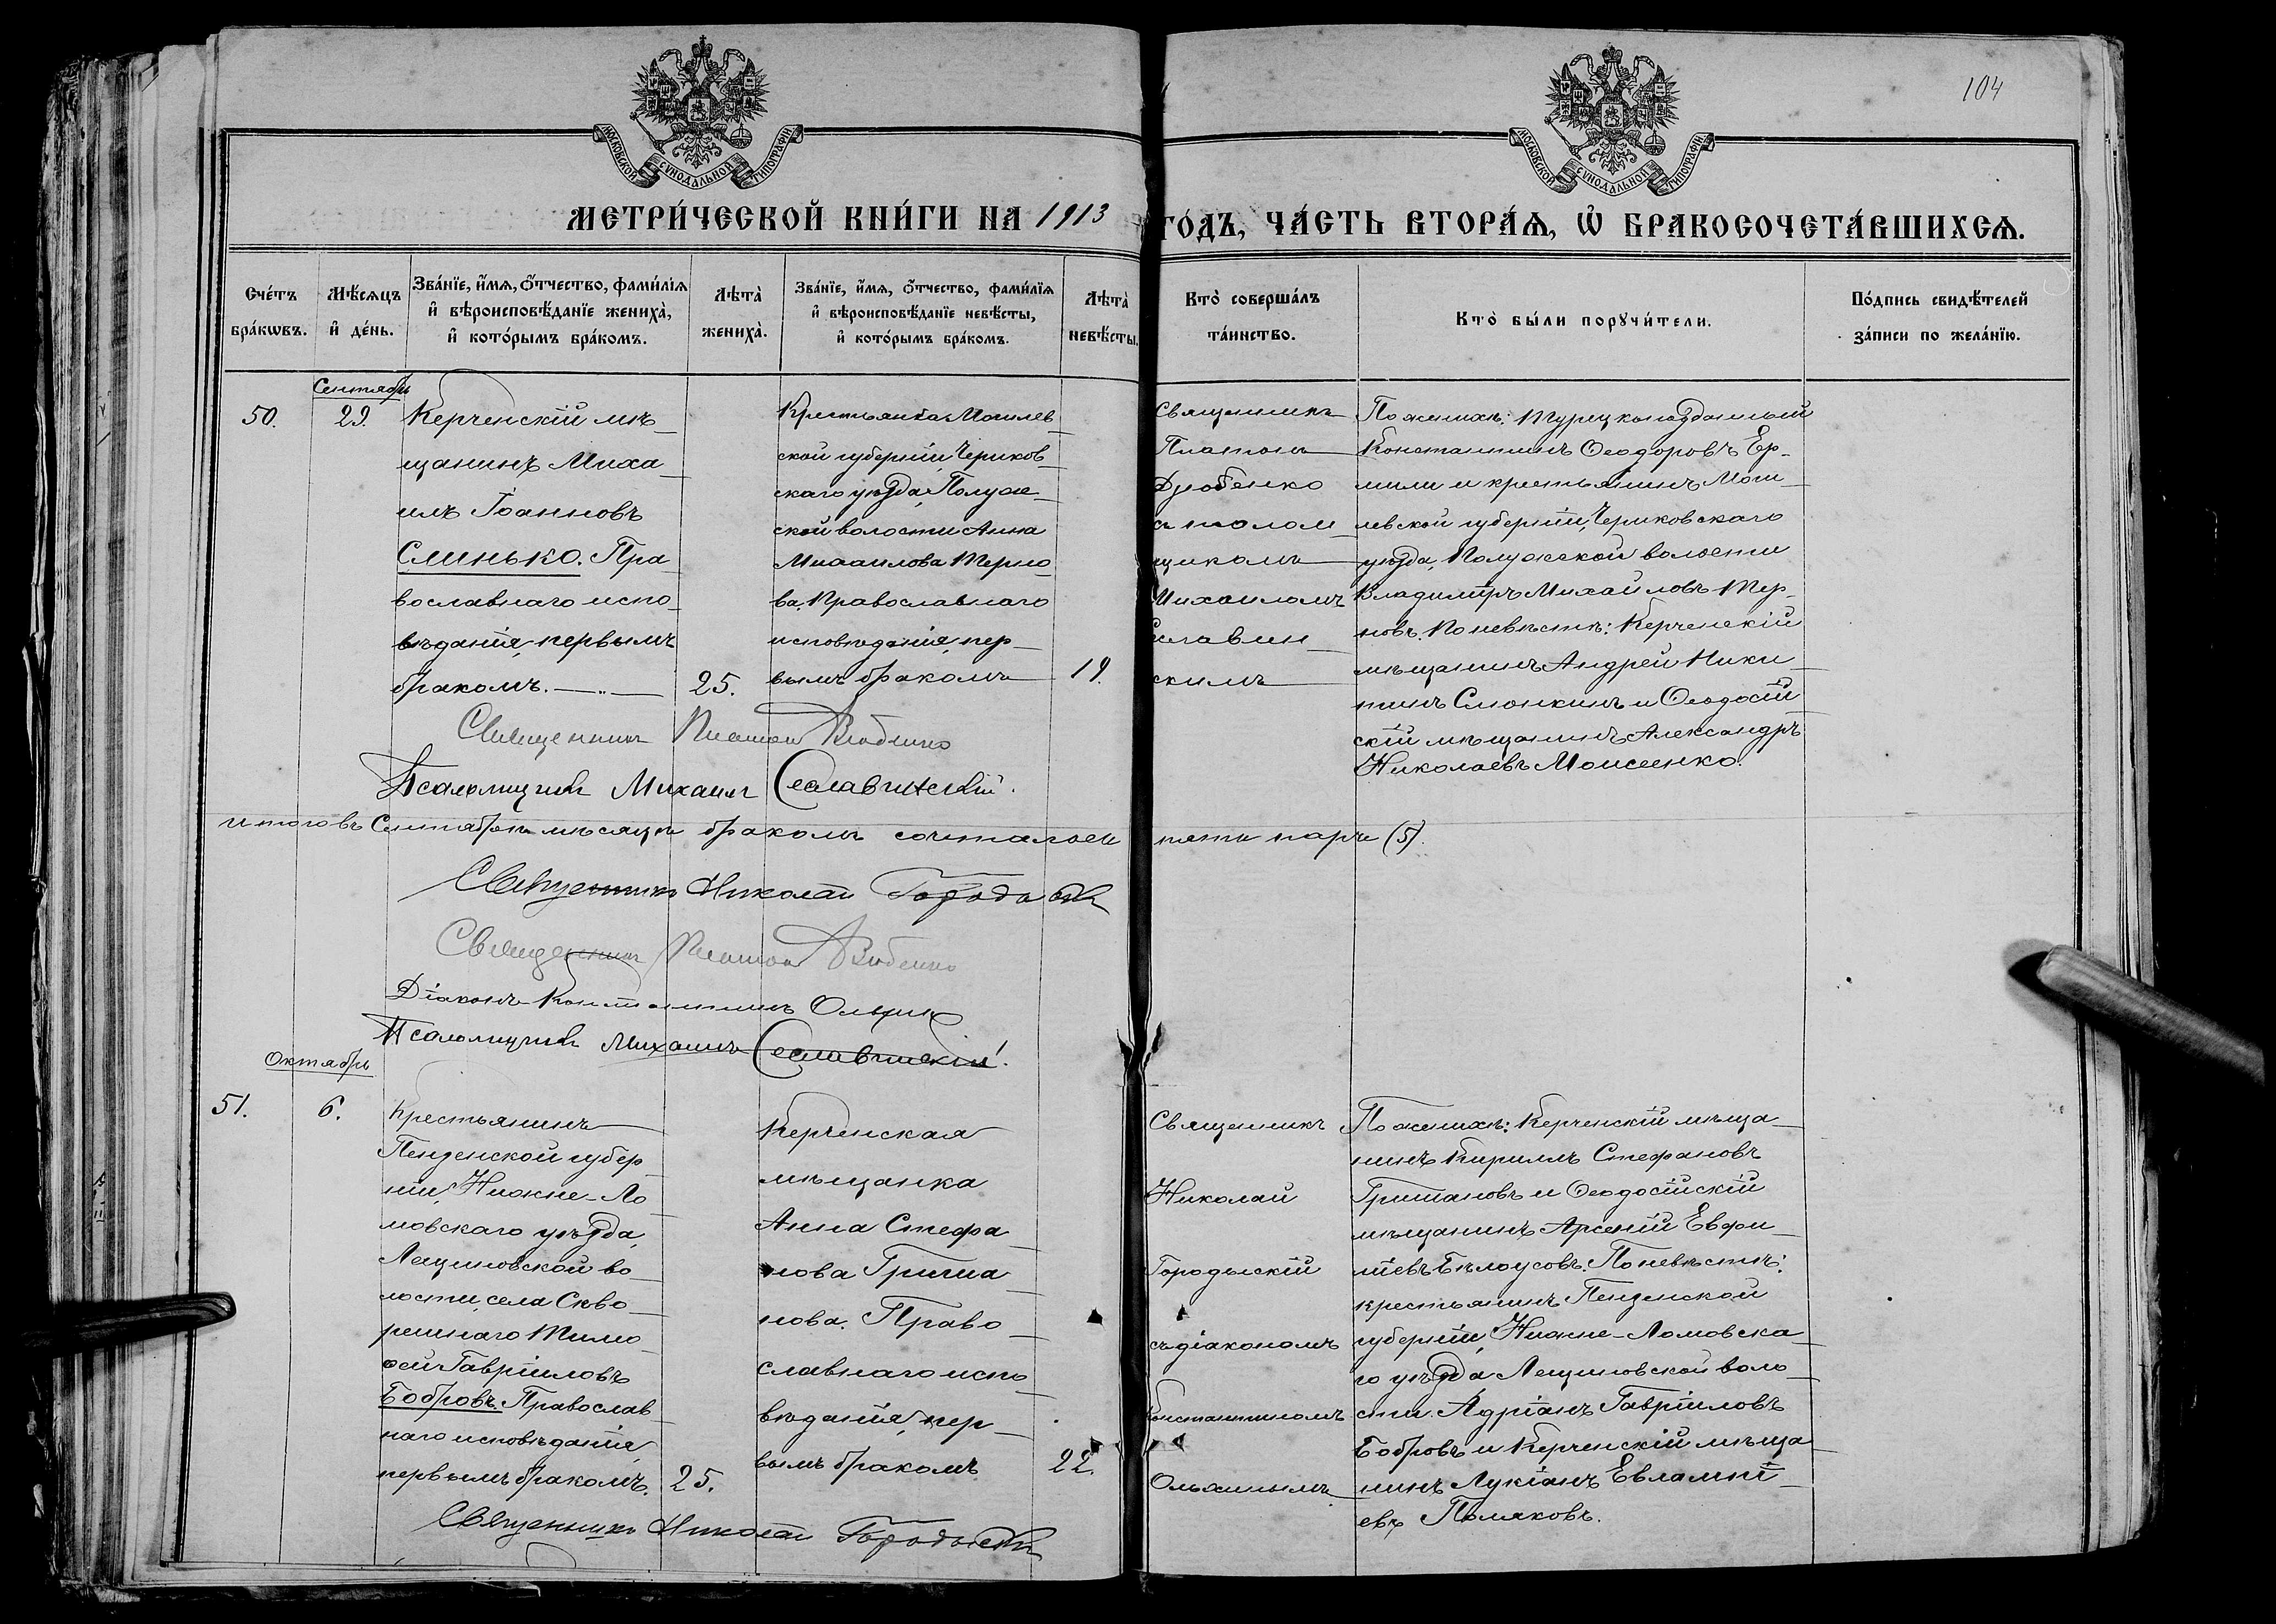 104
МОСКОВСКОЙ СѴНОДАЛЬНОЙ ТИПОГРАФІИ
МОСКОВСКОЙ СѴНОДАЛЬНОЙ ТИПОГРАФІИ
МЕТРИ́ЧЕСКОЙ КНИ́ГИ НА 1913 ГО́ДЪ, ЧА́СТЬ ВТОРА́Ѧ, Ѡ҆ БРАКОСОЧЕТА́ВШИХСѦ.
Сче́тъ бра́кѡвъ.
Мѣ́сѧцъ и҆ де́нь.
Зва́нїе, и҆́мѧ, ѻ҆́тчество, фами́лїѧ и҆ вѣроисповѣ́данїе жениха̀, и҆ кото́рымъ бра́комъ.
Лѣта̀ жениха̀.
Зва́нїе, и҆́мѧ, ѻ҆́тчество, фами́лїѧ и҆ вѣроисповѣ́данїе невѣ́сты, и҆ кото́рымъ бра́комъ.
Лѣта̀ невѣ́сты.
Кто̀ соверша́лъ та́инство.
Кто̀ бы́ли порꙋчи́тели.
По́дпись свидѣ́телей за́писи по жела́нїю.
Сентябрь
50.
29.
Керченскій мѣ-
щанинъ Миха-
илъ Іоанновъ
Слинько. Пра-
вославнаго испо-
вѣданія, первымъ
бракомъ.
25.
Крестьянка Могилев-
ской губерніи, Чериков-
скаго уѣзда, Полуже-
ской волости Анна
Михаилова Терно-
ва. Православнаго
исповѣданія, пер-
вымъ бракомъ
19.
Священникъ
Платонъ
Дробенко
съ псалом-
щикомъ
Михаиломъ
Сеславин-
скимъ
По женихѣ: Турецкоподданный
Константинъ Ѳеодоровъ Ер-
мили и крестьянинъ Моги-
левской губерніи, Чериковскаго
уѣзда, Полужской волости
Владиміръ Михайловъ Тер-
новъ. По невѣстѣ: Керченскій
мѣщанинъ Андрей Ники-
тинъ Смонкинъ и Ѳеодосій-
скій мѣщанинъ Александръ
Николаевъ Моисеенко.
Священникъ Платон
Псаломщикъ Михаил Сеславинскій.
Итого въ Сентябрѣ мѣсяцѣ бракомъ сочеталось пять паръ (5).
Священникъ Николай Городыскій
Священникъ Платон
Діаконъ Константинъ
Псаломщикъ Михаилъ Сеславинскій.
Октябрь
51.
6.
Крестьянинъ
Пензенской губер-
ніи, Нижне-Ло-
мовскаго уѣзда,
Лещиновской во-
лости, села Скво-
решнаго Тимо-
ѳей Гавріиловъ
Бобровъ. Православ-
наго исповѣданія,
первымъ бракомъ.
25.
Керченская
мѣщанка
Анна Стефа-
нова Гриша-
нова. Право-
славнаго испо-
вѣданія, пер-
вымъ бракомъ
22.
Священникъ
Николай
Городыскій
съ діакономъ
Константиномъ
Ольхинымъ
По женихѣ: Керченскій мѣща-
нинъ Кириллъ Стефановъ
Гришановъ и Ѳеодосійскій
мѣщанинъ Арсеній Евфи-
міевъ Бѣлоусовъ. По невѣстѣ:
крестьянинъ Пензенской
губерніи, Нижне-Ломовска-
го уѣзда Лещиновской воло-
сти Адріанъ Гавріиловъ
Бобровъ и Керченскій мѣща-
нинъ Лукіанъ Евлампі-
евъ Поляковъ.
Священникъ Николай Городыскій